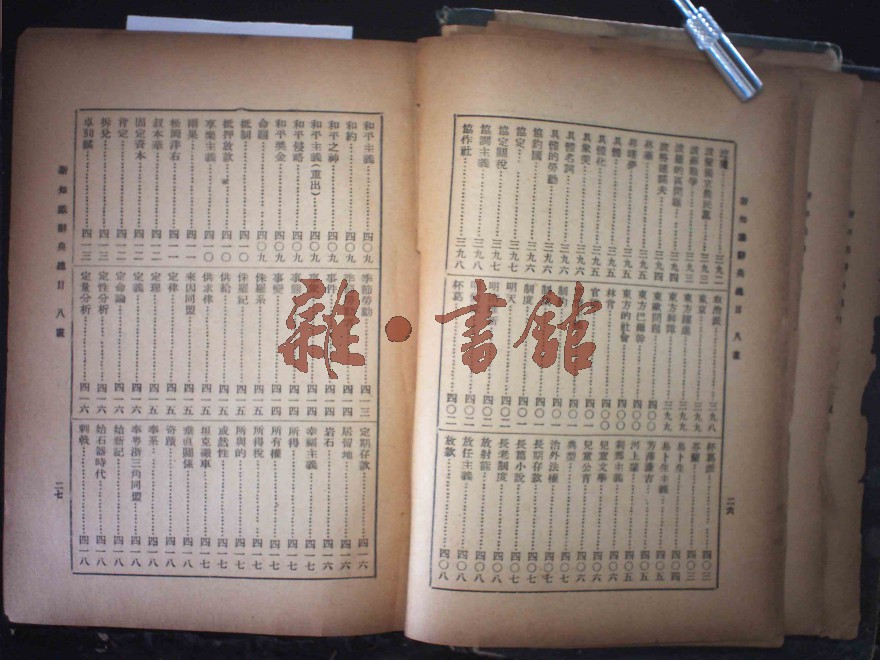 新知識辭典總目 八畫
二六
波蘭國立農民黨……三九二
波蘭的區間題……三九三
昇華……三九五
昇曙夢……三九五
具體……三九五
具體化……三九五
具象美……三九六
具體名詞……三九六
具體的勞動……三九六
協約國……三九六
協定……三九七
協定關稅……三九七
協調主義……三九八
協作社……三九八
政治派……三九八
東京……三九九
東方問題……四〇〇
東方巴爾幹……四〇〇
東方的社會……四〇〇
林肯……四〇〇
制度……四〇一
明天……四〇一
杯葛……四〇二
杯葛派……四〇三
易卜生……四〇四
易卜生主義……四〇四
芳澤謙吉……四〇五
河上肇……四〇五
刹那主義……四〇六
兒童文學……四〇六
兒童公育……四〇六
典型……四〇六
治外法權……四〇七
長期存款……四〇七
長篇小說……四〇七
長老制度……四〇七
放射能……四〇八
放任主義……四〇八
放款……四〇八
雜·書館
和平主義……四〇九
和約……四〇九
和平之神……四〇九
和平主義(重出)……四〇九
和平侵略……四〇九
和平獎金……四〇九
命題……四〇九
抵制……四一〇
抵押放款……四一〇
享樂主義……四一〇
雨果……四一一
松岡洋右……四一一
叔本華……四一二
固定資本……四一二
肯定……四一二
拆兌……四一三
卓別麟……四一三
季節勞動……四一三
事件……四一四
事變……四一四
侏羅系……四一五
侏羅記……四一五
供給……四一五
供求律……四一五
來因同盟……四一五
定律……四一五
定理……四一五
定義……四一六
定命論……四一六
定性分析……四一六
定量分析……四一六
定期存款……四一六
居留地……四一六
岩石……四一六
幸福主義……四一七
所得……四一七
所有權……四一七
所得稅……四一七
所與的……四一七
或然性……四一七
坦克車……四一七
垂直關係……四一八
奇蹟……四一八
奉系……四一八
奉粵浙三角同盟……四一八
始新記……四一八
始石器時代……四一八
刺戟……四一八
新知識辭典總目 八畫
二七